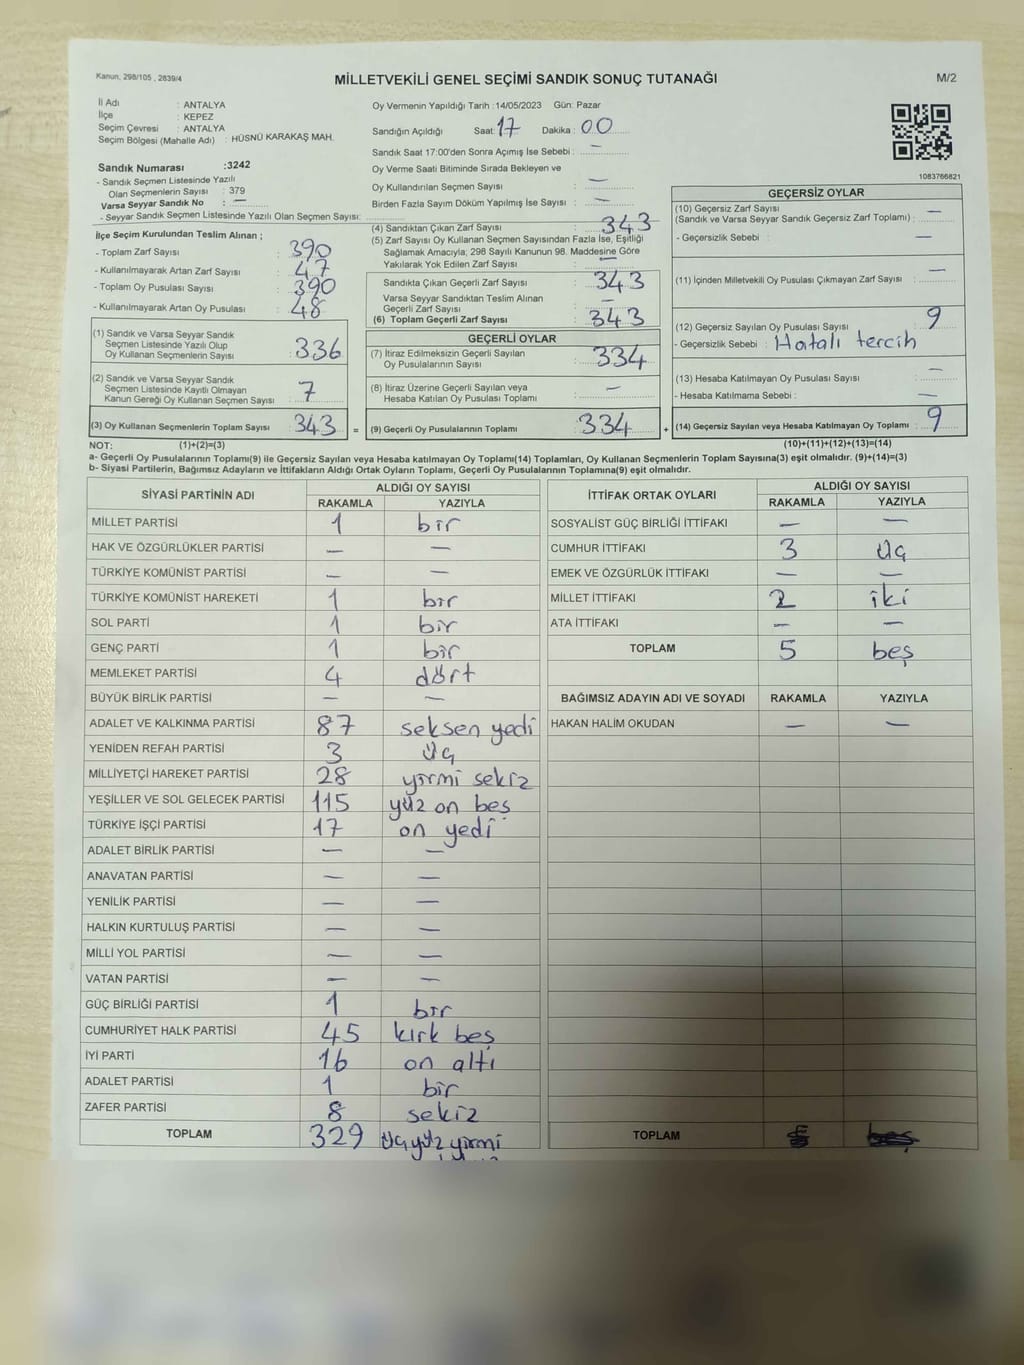 Kanun, 298/105 , 2839/4
MİLLETVEKİLİ GENEL SEÇİMİ SANDIK SONUÇ TUTANAĞI
M/2
İl Adı : ANTALYA
İlçe : KEPEZ
Seçim Çevresi : ANTALYA
Seçim Bölgesi (Mahalle Adı) : HÜSNÜ KARAKAŞ MAH.
Sandık Numarası :3242
- Sandık Seçmen Listesinde Yazılı
Olan Seçmenlerin Sayısı : 379
Varsa Seyyar Sandık No : —
- Seyyar Sandık Seçmen Listesinde Yazılı Olan Seçmen Sayısı:
Oy Vermenin Yapıldığı Tarih :14/05/2023 Gün: Pazar
Sandığın Açıldığı Saat: 17 Dakika : 00
Sandık Saat 17:00'den Sonra Açımış İse Sebebi : —
Oy Verme Saati Bitiminde Sırada Bekleyen ve
Oy Kullandırılan Seçmen Sayısı : —
Birden Fazla Sayım Döküm Yapılmış İse Sayısı : —
1083766821
İlçe Seçim Kurulundan Teslim Alınan ;
- Toplam Zarf Sayısı : 390
- Kullanılmayarak Artan Zarf Sayısı : 47
- Toplam Oy Pusulası Sayısı : 390
- Kullanılmayarak Artan Oy Pusulası : 48
(1) Sandık ve Varsa Seyyar Sandık
Seçmen Listesinde Yazılı Olup
Oy Kullanan Seçmenlerin Sayısı : 336
(2) Sandık ve Varsa Seyyar Sandık
Seçmen Listesinde Kayıtlı Olmayan
Kanun Gereği Oy Kullanan Seçmen Sayısı : 7
(3) Oy Kullanan Seçmenlerin Toplam Sayısı : 343 =
(4) Sandıktan Çıkan Zarf Sayısı : 343
(5) Zarf Sayısı Oy Kullanan Seçmen Sayısından Fazla İse, Eşitliği
Sağlamak Amacıyla, 298 Sayılı Kanunun 98. Maddesine Göre
Yakılarak Yok Edilen Zarf Sayısı : —
Sandıkta Çıkan Geçerli Zarf Sayısı : 343
Varsa Seyyar Sandıktan Teslim Alınan
Geçerli Zarf Sayısı : —
(6) Toplam Geçerli Zarf Sayısı : 343
GEÇERLİ OYLAR
(7) İtiraz Edilmeksizin Geçerli Sayılan
Oy Pusulalarının Sayısı : 334
(8) İtiraz Üzerine Geçerli Sayılan veya
Hesaba Katılan Oy Pusulası Toplamı : —
(9) Geçerli Oy Pusulalarının Toplamı : 334 +
GEÇERSİZ OYLAR
(10) Geçersiz Zarf Sayısı
(Sandık ve Varsa Seyyar Sandık Geçersiz Zarf Toplamı) : —
- Geçersizlik Sebebi : —
(11) İçinden Milletvekili Oy Pusulası Çıkmayan Zarf Sayısı : —
(12) Geçersiz Sayılan Oy Pusulası Sayısı : 9
- Geçersizlik Sebebi : Hatalı tercih
(13) Hesaba Katılmayan Oy Pusulası Sayısı : —
- Hesaba Katılmama Sebebi : —
(14) Geçersiz Sayılan veya Hesaba Katılmayan Oy Toplamı : 9
NOT: (1)+(2)=(3)
(10)+(11)+(12)+(13)=(14)
a- Geçerli Oy Pusulalarının Toplamı(9) ile Geçersiz Sayılan veya Hesaba katılmayan Oy Toplamı(14) Toplamları, Oy Kullanan Seçmenlerin Toplam Sayısına(3) eşit olmalıdır. (9)+(14)=(3)
b- Siyasi Partilerin, Bağımsız Adayların ve İttifakların Aldığı Ortak Oyların Toplamı, Geçerli Oy Pusulalarının Toplamına(9) eşit olmalıdır.
SİYASİ PARTİNİN ADI ALDIĞI OY SAYISI
RAKAMLA YAZIYLA
MİLLET PARTİSİ 1 bir
HAK VE ÖZGÜRLÜKLER PARTİSİ — —
TÜRKİYE KOMÜNİST PARTİSİ — —
TÜRKİYE KOMÜNİST HAREKETİ 1 bir
SOL PARTİ 1 bir
GENÇ PARTİ 1 bir
MEMLEKET PARTİSİ 4 dört
BÜYÜK BİRLİK PARTİSİ — —
ADALET VE KALKINMA PARTİSİ 87 seksen yedi
YENİDEN REFAH PARTİSİ 3 üç
MİLLİYETÇİ HAREKET PARTİSİ 28 yirmi sekiz
YEŞİLLER VE SOL GELECEK PARTİSİ 115 yüz on beş
TÜRKİYE İŞÇİ PARTİSİ 17 on yedi
ADALET BİRLİK PARTİSİ — —
ANAVATAN PARTİSİ — —
YENİLİK PARTİSİ — —
HALKIN KURTULUŞ PARTİSİ — —
MİLLİ YOL PARTİSİ — —
VATAN PARTİSİ — —
GÜÇ BİRLİĞİ PARTİSİ 1 bir
CUMHURİYET HALK PARTİSİ 45 kırk beş
İYİ PARTİ 16 on altı
ADALET PARTİSİ 1 bir
ZAFER PARTİSİ 8 sekiz
TOPLAM 329 üçyüz yirmi
İTTİFAK ORTAK OYLARI ALDIĞI OY SAYISI
RAKAMLA YAZIYLA
SOSYALİST GÜÇ BİRLİĞİ İTTİFAKI — —
CUMHUR İTTİFAKI 3 üç
EMEK VE ÖZGÜRLÜK İTTİFAKI — —
MİLLET İTTİFAKI 2 iki
ATA İTTİFAKI — —
TOPLAM 5 beş
BAĞIMSIZ ADAYIN ADI VE SOYADI RAKAMLA YAZIYLA
HAKAN HALİM OKUDAN — —
TOPLAM